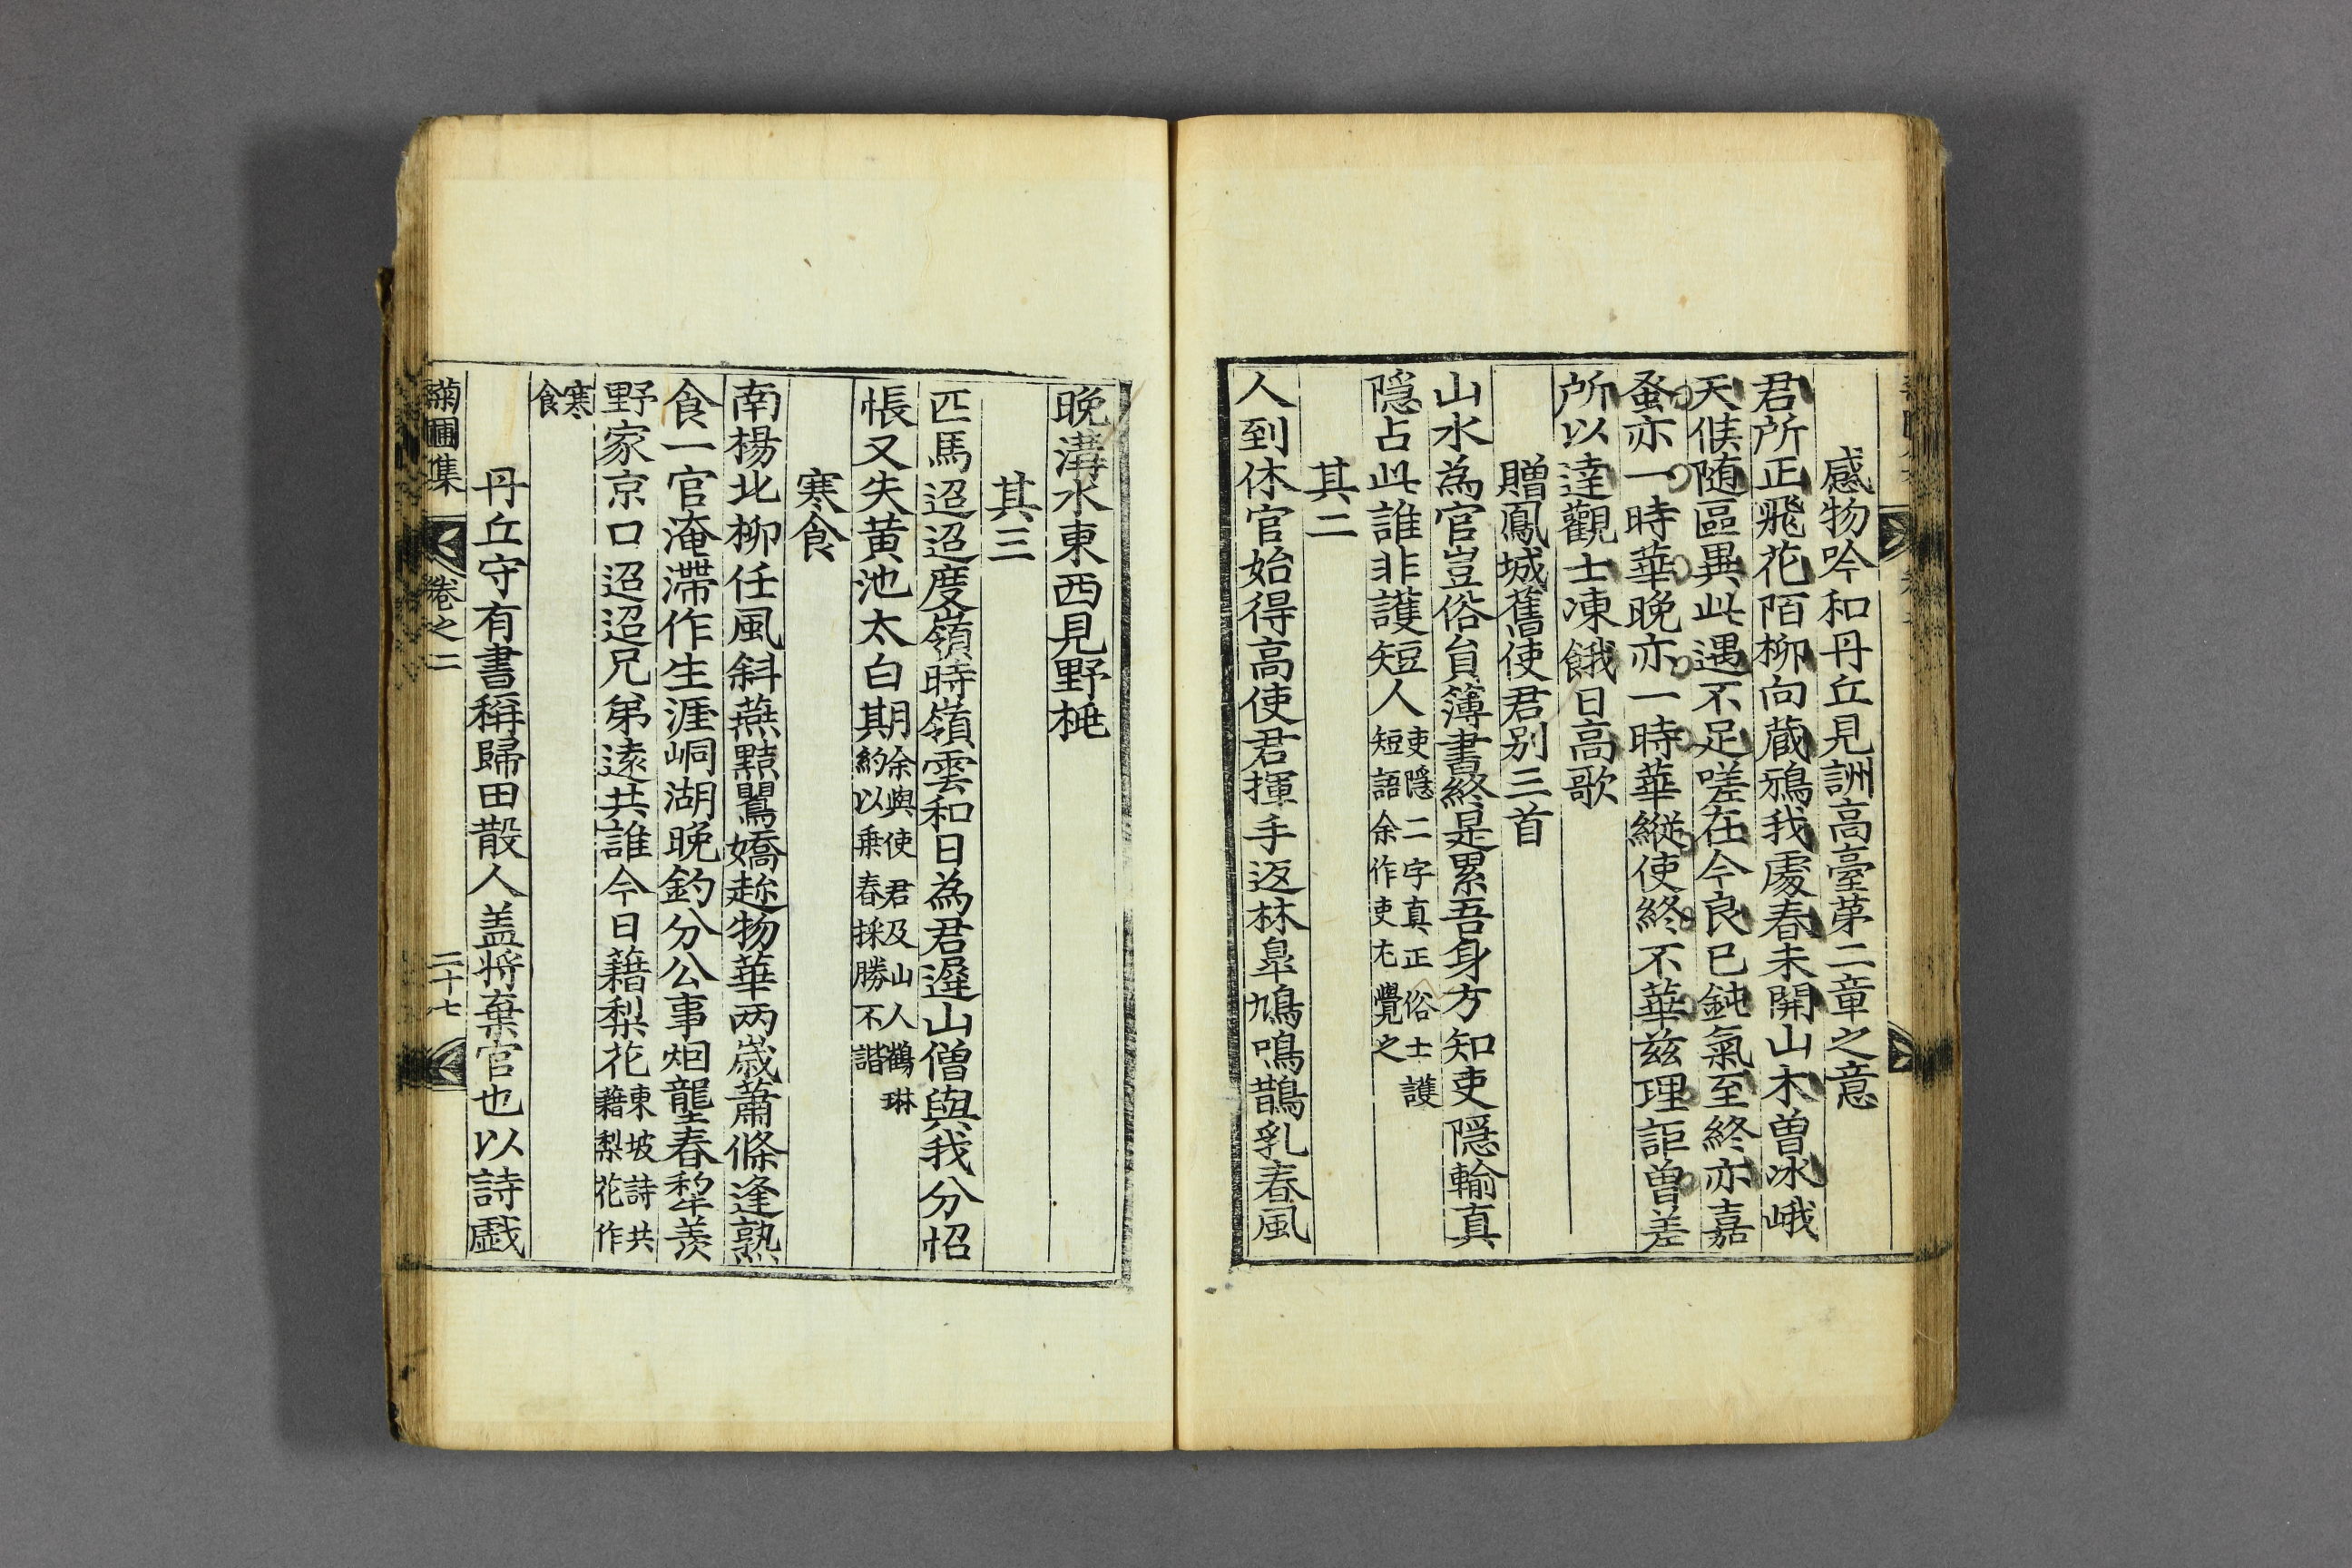 感物吟和丹丘見詶高臺第二章之意
君所正飛花陌柳向蔵鴉我處春未開山木曽冰峨
天候随區異此遇不足嗟在今良已鈍氣至終亦嘉
蚤亦一時華晩亦一時華縦使終不華兹理詎曽差
所以達觀士凍餓日高歌
贈鳳城舊使君别三首
山水為官豈俗貟簿書終是累吾身方知吏隠輸真
隠占此誰非護短人吏隠二字真正俗士護
短語余作吏尤覺之
其二
人到休官始得高使君揮手返林皐鳩鳴鵲乳春風
晩溝水東西見野桃
其三
匹馬迢迢度嶺時嶺雲和日為君遲山僧與我分怊
悵又失黄池太白期余與使君及山人鶴琳
約以乗春採勝不諧
寒食
南楊北柳任風斜燕㸃鸎嬌趂物華两歳蕭條逢熟
食一官淹滯作生涯峒湖晩釣分公事炟壟春犂羨
野家京口迢迢兄弟遠共誰今日藉梨花東坡詩共
藉梨花作
寒
食
丹丘守有書稱歸田散人盖将棄官也以詩戯
菊圃集 卷之二 二十七